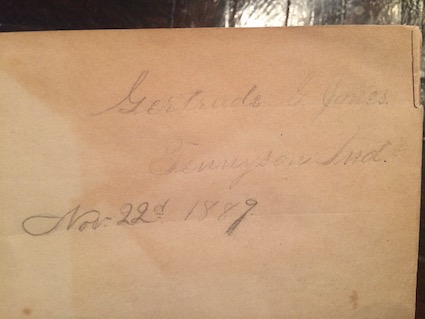 Gertrude G. Jones.
Tennyson Ind.
Nov. 22d. 1889.